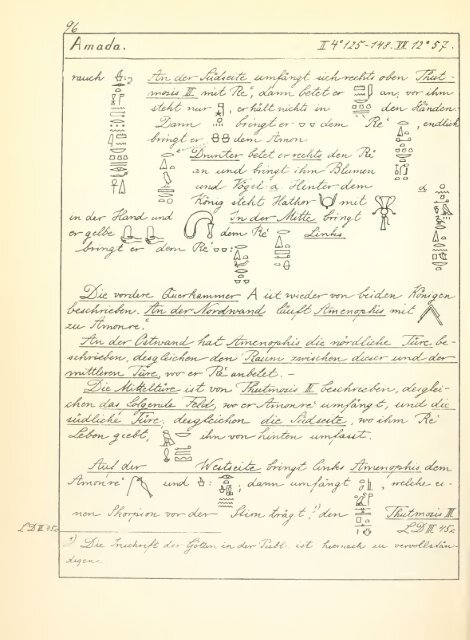 96
Amada. II 4° 125-148. VII 12° 57.
rauch An der Südseite umfängt sich rechts oben Thut-
mosis III mit Re', dann betet er an, vor ihm
steht nur , er hält nichts in den Händen.
Dann bringt er dem Re' , endlich
bringt er dem Amon.
Drunter betet er rechts den Re'
an und bringt ihm Blumen
und Vögel a. Hinter dem
König steht Hathor mit
in der Hand und In der Mitte bringt
er gelbe dem Re' Links
bringt er dem Re' :
Die vordere Querkammer A ist wieder von beiden Königen
beschrieben. An der Nordwand läuft Amenophis mit
zu Amonre'.
An der Ostwand hat Amenophis die nördliche Türe be-
schrieben, desgleichen den Raum zwischen dieser und der
mittleren Türe, wo er Re' anbetet. -
Die Mitteltüre ist von Thutmosis III beschrieben, desglei-
chen das folgende Feld, wo er Amonre' umfängt, und die
südliche Türe, desgleichen die Südseite, wo ihm Re'
Leben giebt, ihn von hinten umfasst.
Auf der Westseite bringt links Amenophis dem
Amonre' und : ; dann umfängt , welche ei-
nen Skorpion vor der Stirn trägt, den Thutmosis III
LD III 45c LD III 45c
Die Inschrift des Gottes in der Publ. ist hiernach zu vervollstän-
digen.